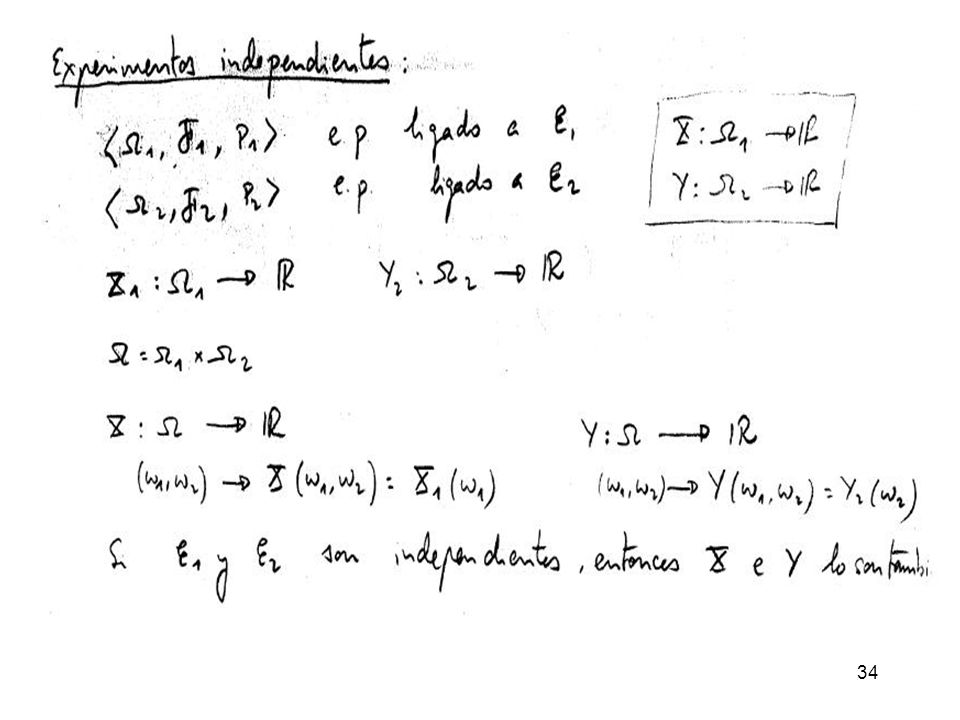 Experimentos independientes:
⟨Ω₁, F₁, P₁⟩ e.p. ligado a E₁
⟨Ω₂, F₂, P₂⟩ e.p. ligado a E₂
X: Ω₁ → ℝ
Y: Ω₂ → ℝ
X₁: Ω₁ → ℝ Y₂: Ω₂ → ℝ
Ω = Ω₁ × Ω₂
X: Ω → ℝ Y: Ω → ℝ
(ω₁, ω₂) → X(ω₁, ω₂) = X₁(ω₁) (ω₁, ω₂) → Y(ω₁, ω₂) = Y₂(ω₂)
Si E₁ y E₂ son independientes, entonces X e Y lo son tambi
34